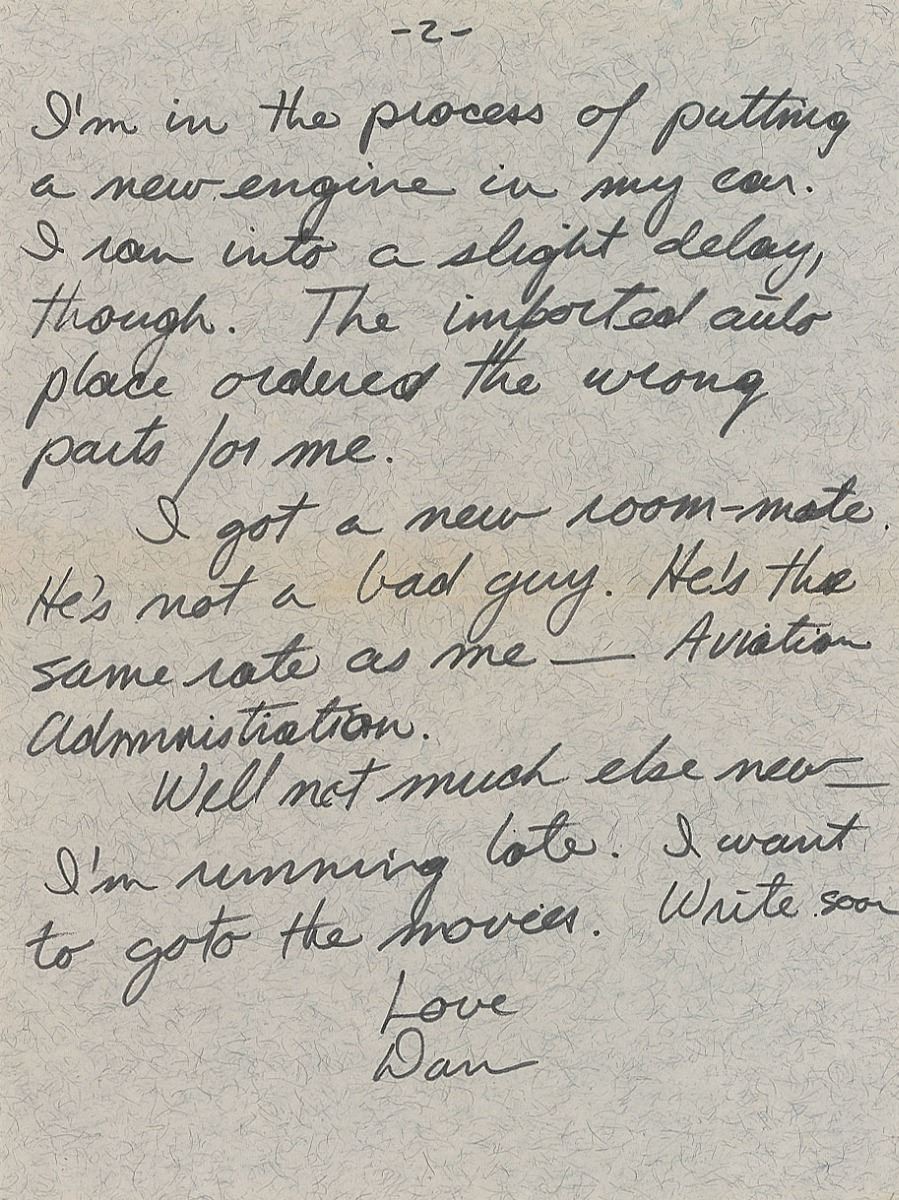 -2-
I'm in the process of putting
a new engine in my car.
I ran into a slight delay,
though. The imported auto
place ordered the wrong
parts for me.
I got a new room-mate.
He's not a bad guy. He's the
same rate as me — Aviation
Administration.
Well not much else new —
I'm running late. I want
to go to the movies. Write soon
Love
Dan